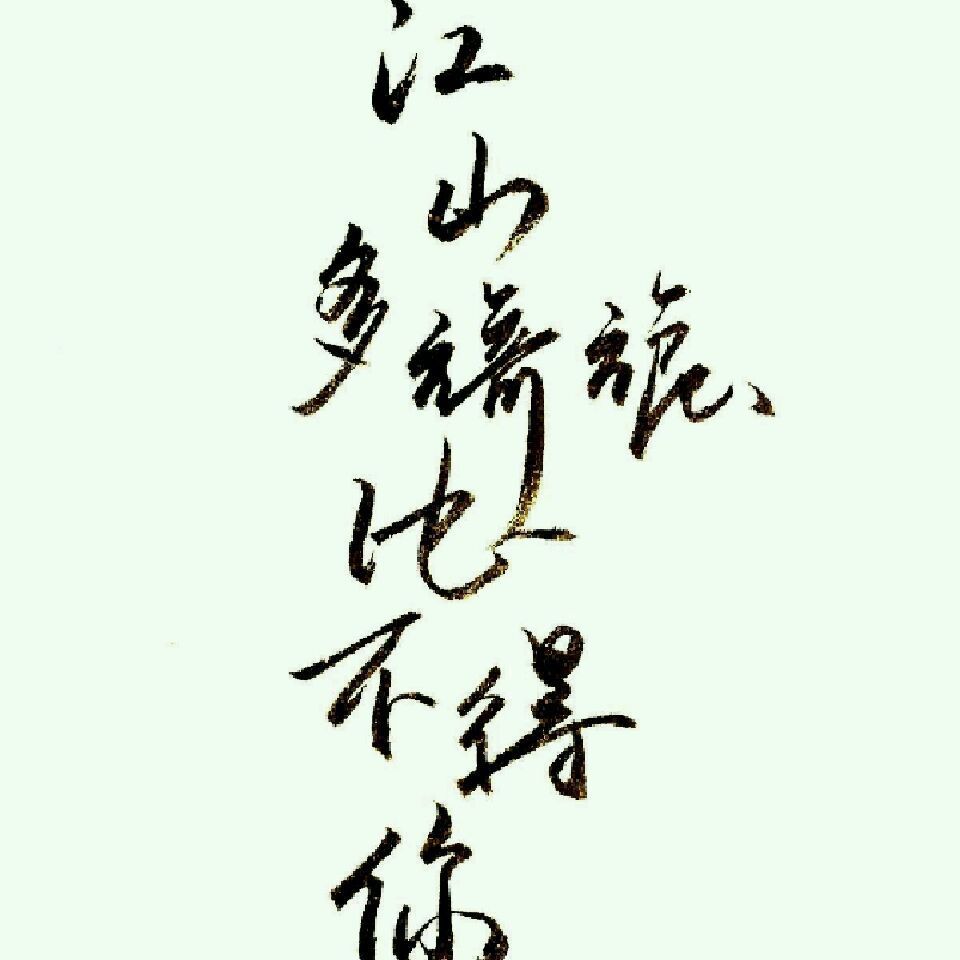 江
山
多旖旎、
比
不得
你